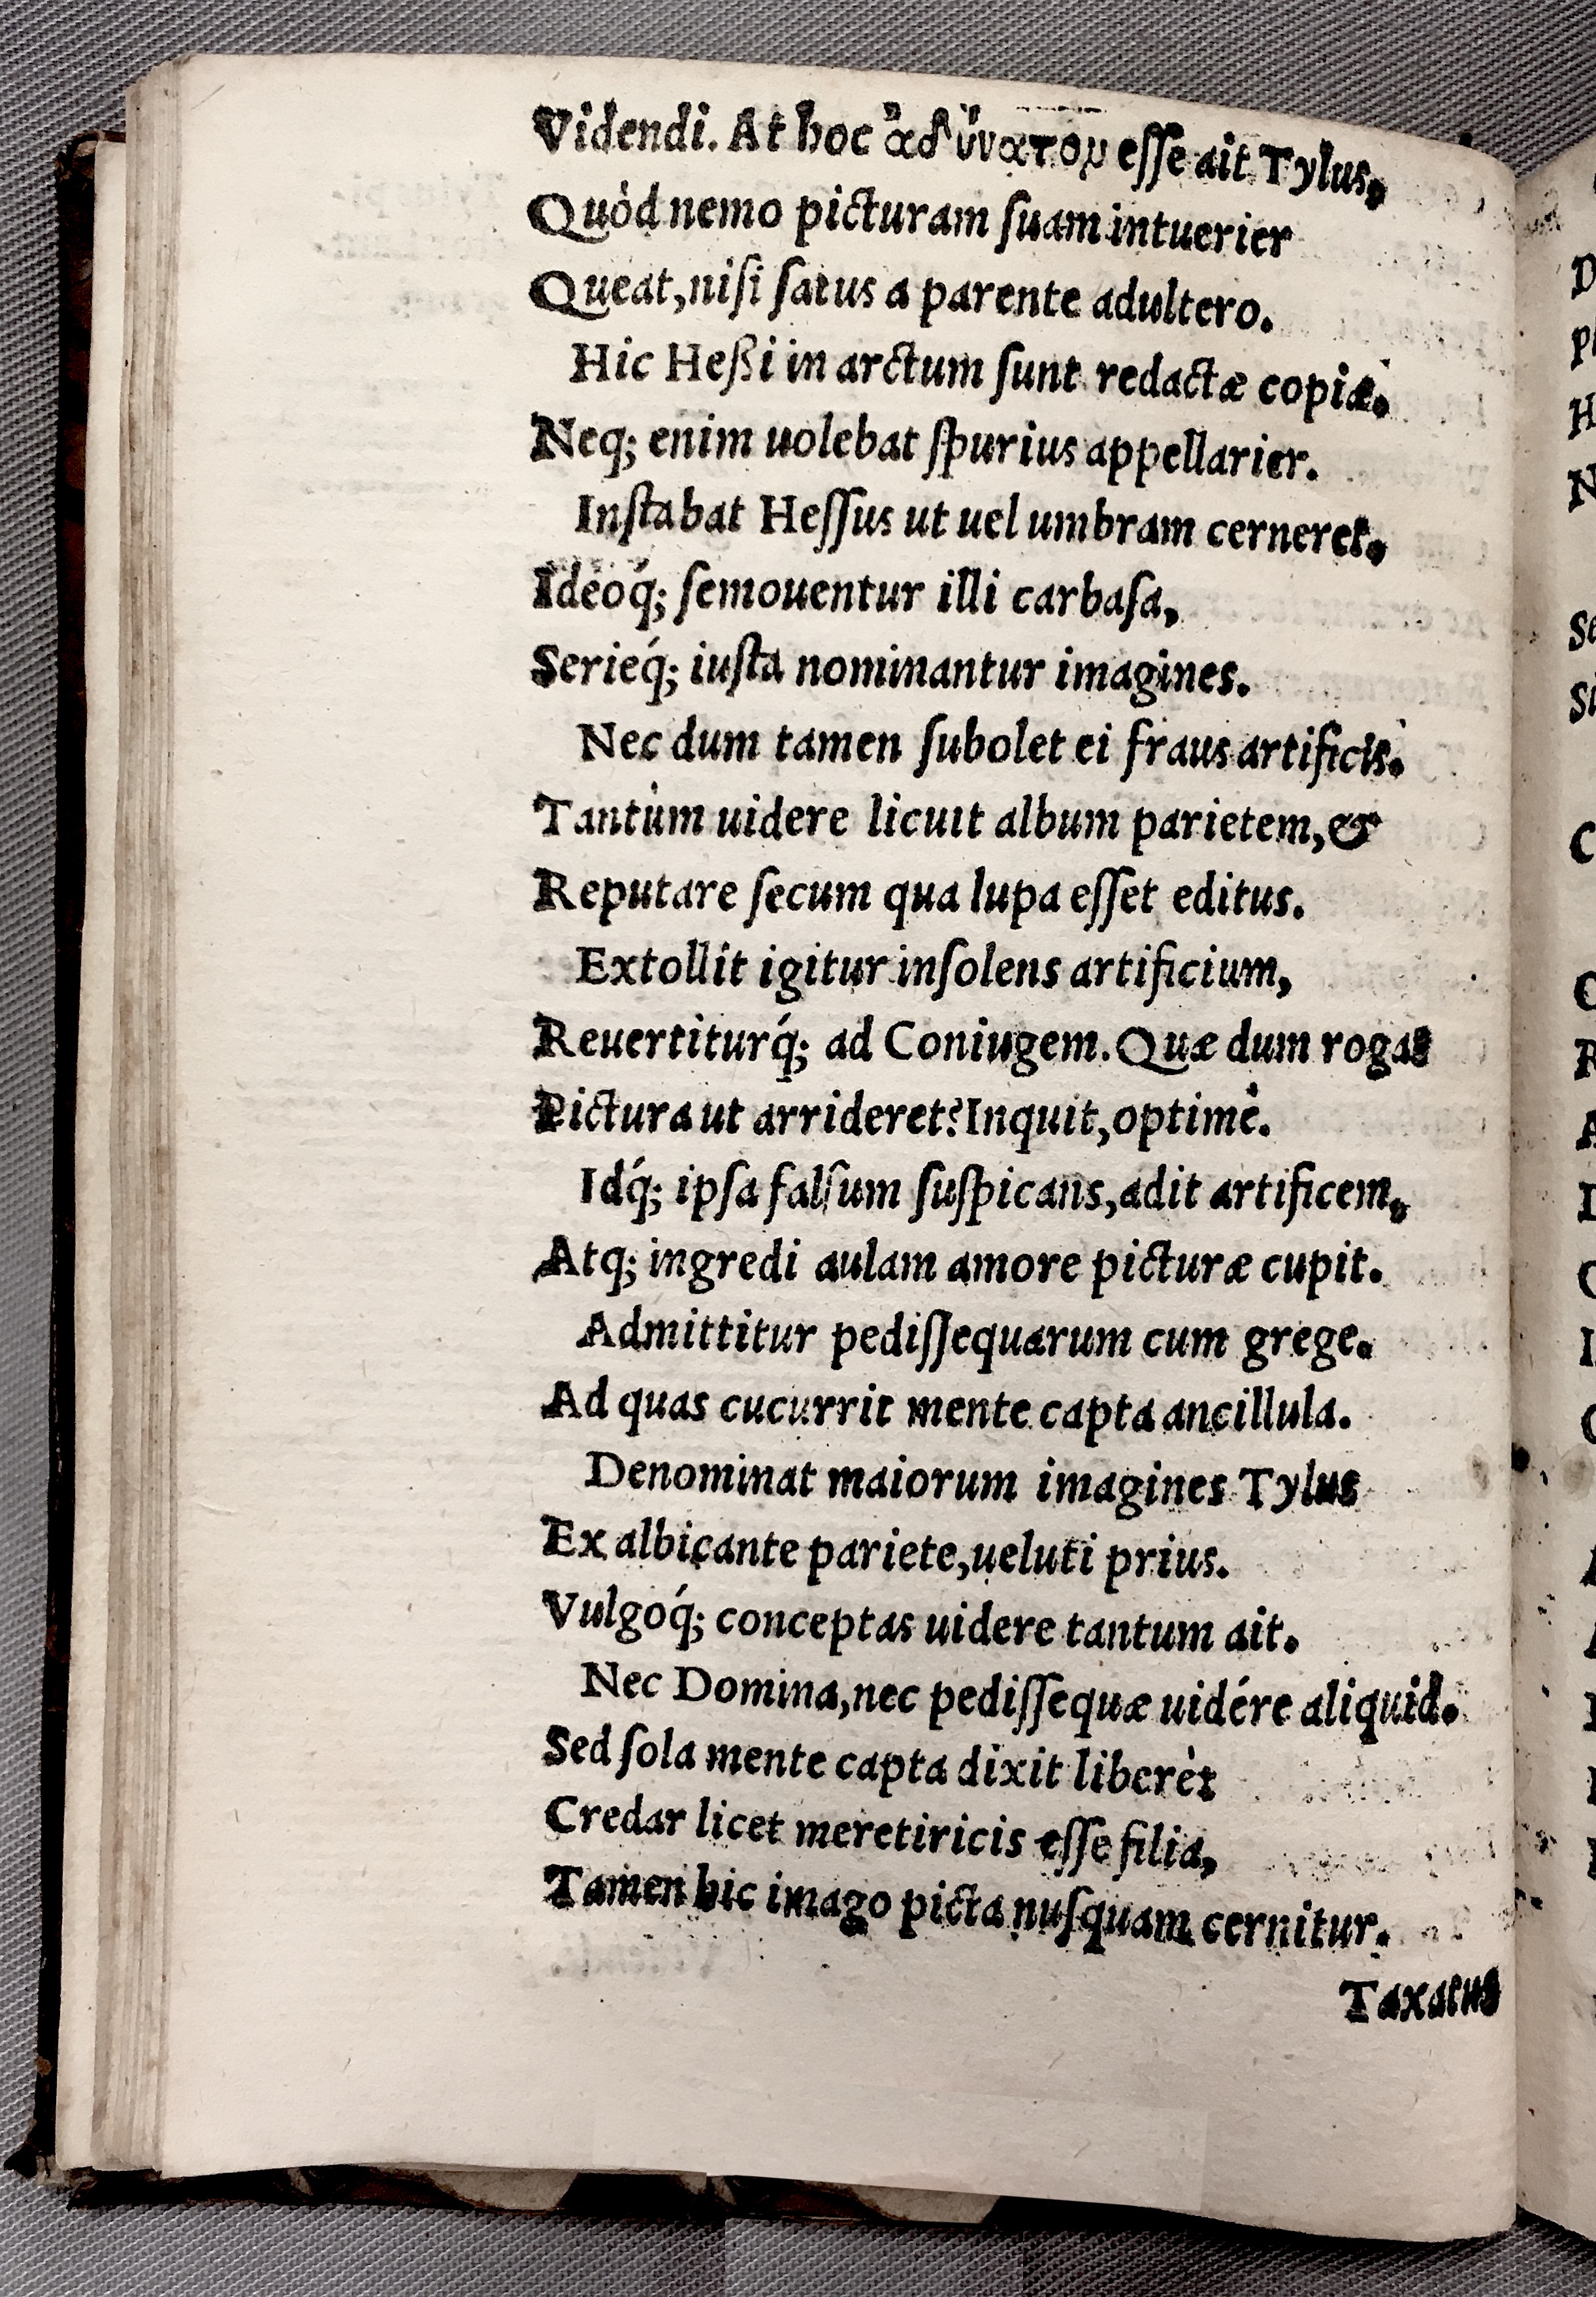 Videndi. At hoc ἀδύνατον eſſe ait Tylus,
Quòd nemo picturam ſuam intuerier
Queat, niſi ſatus a parente adultero.
Hic Heßi in arctum ſunt redactæ copiæ.
Neq; enim uolebat ſpurius appellarier.
Inſtabat Heſſus ut uel umbram cerneret.
Ideoq́; ſemouentur illi carbaſa,
Serieq́; iuſta nominantur imagines.
Nec dum tamen ſubolet ei fraus artificis.
Tantùm uidere licuit album parietem, &
Reputare ſecum qua lupa eſſet editus.
Extollit igitur inſolens artificium,
Reuertiturq́; ad Coniugem. Quæ dum rogas
Pictura ut arrideret? Inquit, optimè.
Idq́; ipſa falſum ſuſpicans, adit artificem,
Atq; ingredi aulam amore picturæ cupit.
Admittitur pediſſequarum cum grege.
Ad quas cucurrit mente capta ancillula.
Denominat maiorum imagines Tylus
Ex albicante pariete, ueluti prius.
Vulgoq́; conceptas uidere tantum ait.
Nec Domina, nec pediſſequæ uidére aliquid.
Sed ſola mente capta dixit liberè:
Credar licet meretiricis eſſe filia,
Tamen hic imago picta nuſquam cernitur.
Taxatus